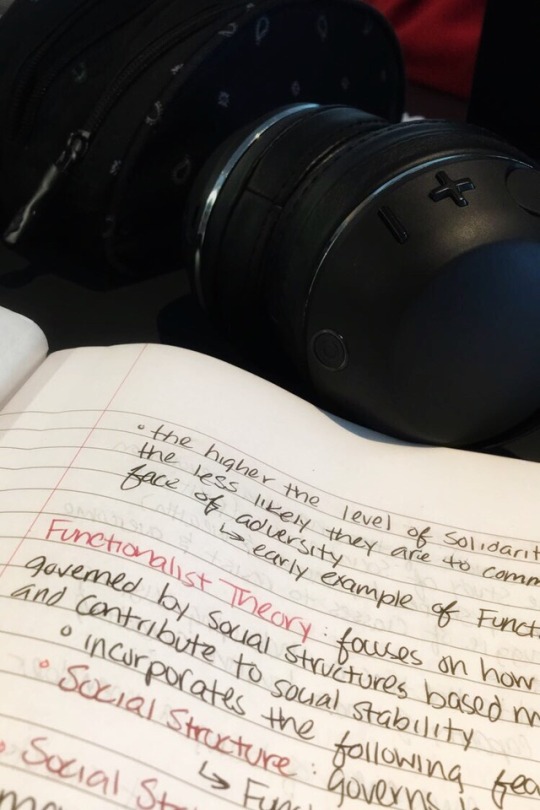 • the higher the level of solidarit
the less likely they are to comm
face of adversity
↳ early example of Funct
Functionalist Theory : focuses on how
governed by social structures based m
and contribute to social stability
• incorporates the following fea
• Social Structure : governs
↳ Func
• Social St